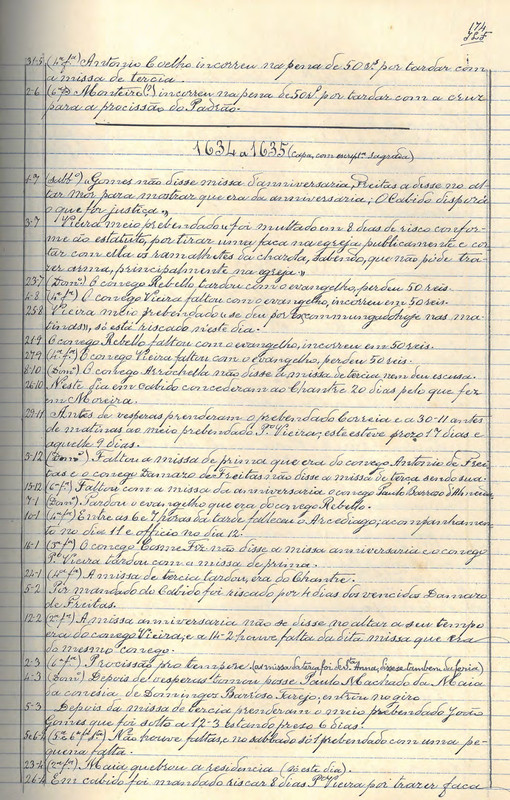 174
31-5 (4ª fª) Antonio Coelho incorreu na pena de 50 rs. por tardar com
a missa de tercia.
2-6 (6ª fª) Monteiro (?) incorreu na pena de 50 rs. por tardar com a cruz
para a procissão do Padrão.
1634 a 1635 (capa, com escriptª sagrada)
1-7 (sabbº) "Gomes não disse missa d'anniversaria, Freitas a disse no al-
tar mór para mostrar que era da anniversaria; O Cabido disporá
o que fôr justiça",
3-7 "Vieira meio prebendado foi multado em 8 dias de risco confor-
me ao estatuto, por tirar uma faca na egreja publicamente e cor-
tar com ella os ramalhetes da charola, sabendo, que não póde tra-
zer arma, principalmente na egreja"
23-7 (Domº) O conego Rebello, tardou com o evangelho, perdeu 50 reis.
4-8 (4ª fª) O conego Vieira faltou com o evangelho, incorreu em 50 reis.
25-8 Vieira meio prebendado se deu por excommungado hoje nas ma-
tinas", só está riscado n'este dia.
21-9 O conego Rebello faltou com o evangelho, incorreu em 50 reis.
27-9 (4ª fª) O conego Vieira faltou com o evangelho, perdeu 50 reis.
8-10 (Domº) O conego Arrochella não disse a missa de tercia nem deu escusa.
26-10 Neste dia em Cabido concederam ao Chantre 20 dias pelo que fez
em Moreira.
29-11 Antes de vesperas prenderam o prebendado Correia e a 30-11 antes
de matinas ao meio prebendado Pº Vieira; este esteve prezo 17 dias e
aquelle 9 dias.
3-12 (Domº) Faltou a missa de prima que era do conego Antonio de Frei-
tas e o conego Damazo de Freitas não disse a missa de terça sendo sua.
15-12 (6ª fª) Faltou com a missa da anniversaria o conego Paulo Barroso d'Almeida.
7-1 (Domº) Tardou o evangelho que era do conego Rebello.
10-1 (4ª fª) Entre as 6 e 7 horas da tarde falleceu o Arcediago; acompanhamen-
to no dia 11 e officio no dia 12.
16-1 (3ª fª) O conego Cosme Frz não disse a missa anniversaria e o conego
Pº Vieira tardou com a missa de prima.
24-1 (4ª fª) A missa de tercia tardou, era do Chantre.
5-2 Por mandado do Cabido foi riscado por 4 dias dos vencidos Damazo
de Freitas.
12-2 (2ª fª) A missa anniversaria não se disse no altar a seu tempo
era do conego Vieira, e a 14-2 houve falta da dita missa que era
do mesmo conego.
2-3 (6ª fª) Procissão pro tempore (as missa da terça foi de Stª Anna,
4-3 (Domº) Depois de vesperas tomou posse Paulo Machado da Maia
da conesia de Domingos Barroso entrou no giro
5-3 Depois da missa de tercia prenderam o meio prebendado João
Gomes que foi solto a 12-3 estando preso 6 dias.
5 e 6-4 (5ª e 6ª fª) Não houve faltas, e no sabbado só 1 prebendado com uma pe-
quena falta.
23-4 (2ª fª) Maia quebrou a residencia (só este dia).
26-4 Em cabido foi mandado riscar 8 dias Pº Vieira por trazer faca